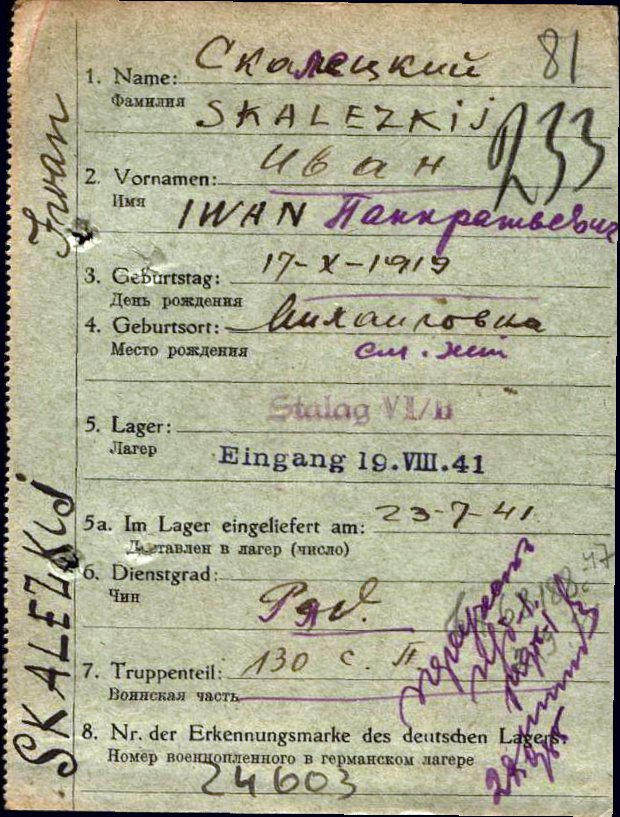 81
1. Name: Скалецкий
Фамилия SKALEZKIJ
233
2. Vornamen: Иван
Имя IWAN Панкратьевич
3. Geburtstag: 17-X-1919
День рождения
4. Geburtsort: Михайловка
Место рождения см.
5. Lager: Stalag VI/B
Лагер Eingang 19.VIII.41
5a. Im Lager eingeliefert am: 23-7-41
Доставлен в лагер (число)
6. Dienstgrad:
Чин Ряд.
7. Truppenteil: 130 с. п
Воинская часть
8. Nr. der Erkennungsmarke des deutschen Lagers:
Номер военнопленного в германском лагере
24603
SKALEZKIJ Iwan